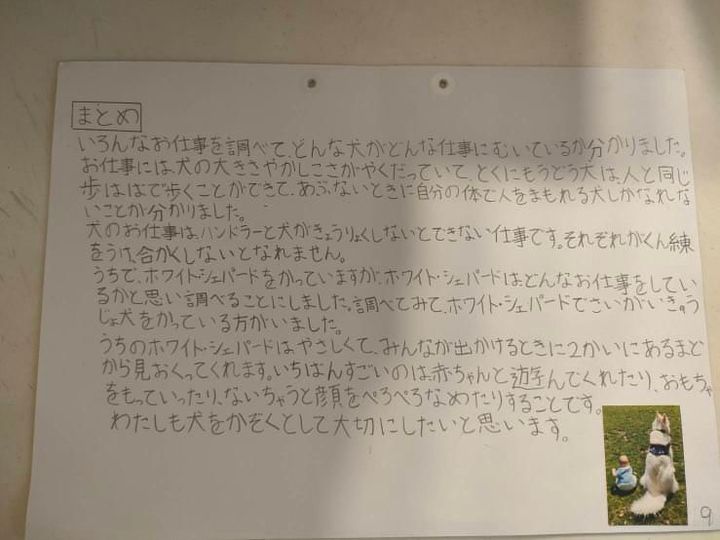 まとめ
いろんなお仕事を調べて、どんな犬がどんな仕事にむいているか分かりました。
お仕事には、犬の大きさやかしこさがやくだっていて、とくにもうどう犬は、人と同じ
歩はばで歩くことができて、あぶないときに自分の体で人をまもれる犬しかなれな
いことが分かりました。
犬のお仕事は、ハンドラーと犬がきょうりょくしないとできない仕事です。それぞれがくん練
をうけ、合かくしないとなれません。
うちで、ホワイト・シェパードをかっていますが、ホワイト・シェパードはどんなお仕事をしてい
るかと思い調べることにしました。調べてみて、ホワイト・シェパードでさいがいきゅう
じょ犬をかっている方がいました。
うちのホワイト・シェパードはやさしくて、みんなが出かけるときに2かいにあるまど
から見おくってくれます。いちばんすごいのは、赤ちゃんと遊んでくれたり、おもちゃ
をもっていったり、ないちゃうと顔をぺろぺろなめたりすることです。
わたしも犬をかぞくとして大切にしたいと思います。
9